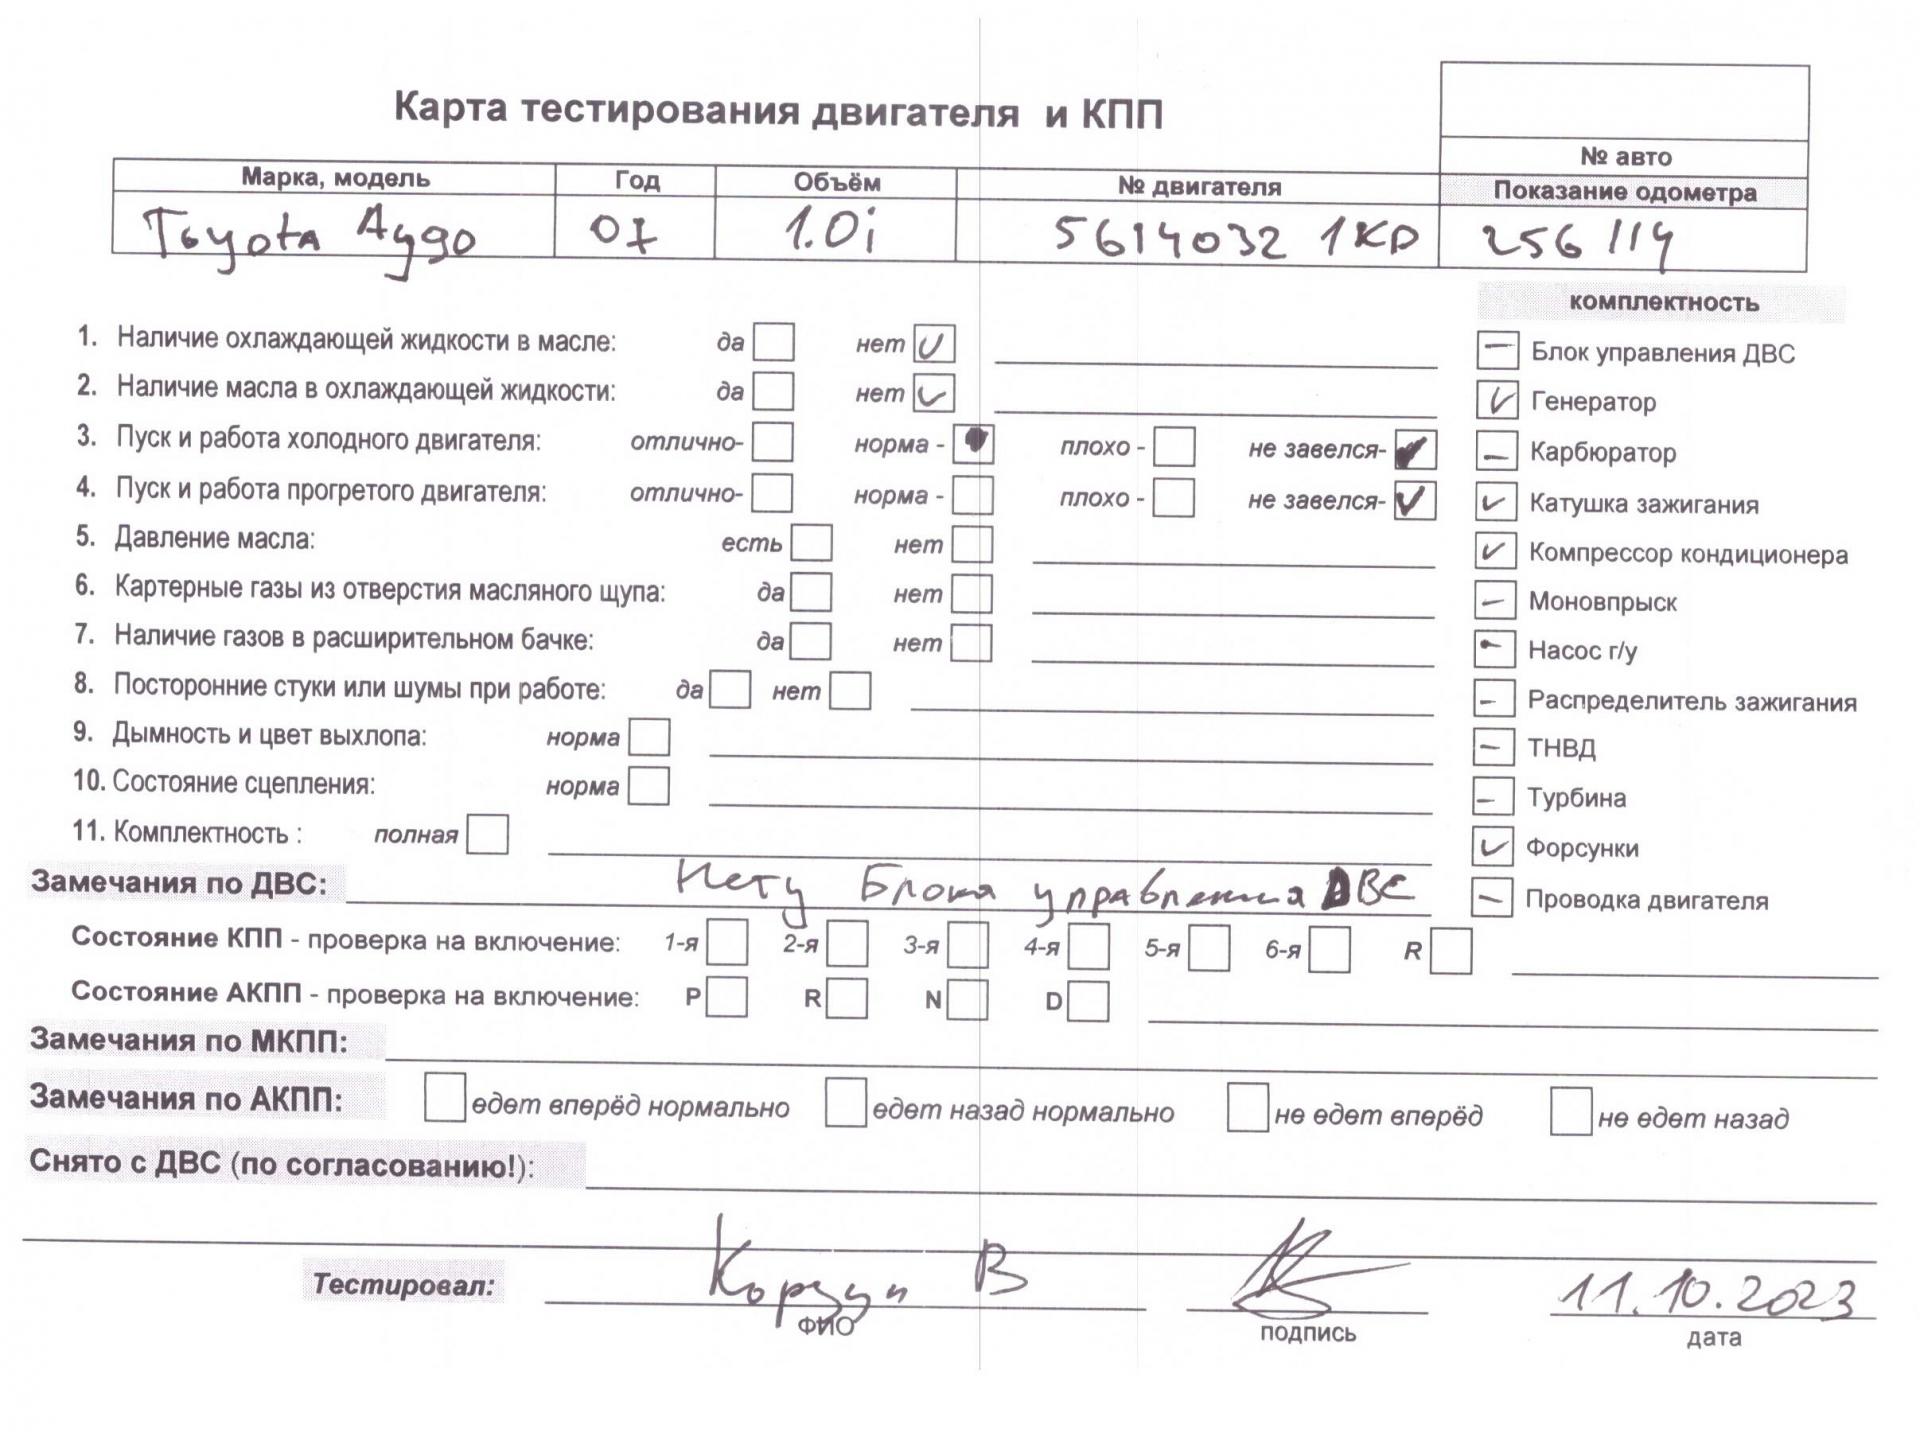 Карта тестирования двигателя и КПП
№ авто
Марка, модель Год Объём № двигателя Показание одометра
Toyota Aygo 07 1.0i 5614032 1KD 256114
комплектность
1. Наличие охлаждающей жидкости в масле: да нет
Блок управления ДВС
2. Наличие масла в охлаждающей жидкости: да нет
Генератор
3. Пуск и работа холодного двигателя: отлично- норма - плохо - не завелся-
Карбюратор
4. Пуск и работа прогретого двигателя: отлично- норма - плохо - не завелся-
Катушка зажигания
5. Давление масла: есть нет
Компрессор кондиционера
6. Картерные газы из отверстия масляного щупа: да нет
Моновпрыск
7. Наличие газов в расширительном бачке: да нет
Насос г/у
8. Посторонние стуки или шумы при работе: да нет
Распределитель зажигания
9. Дымность и цвет выхлопа: норма
ТНВД
10. Состояние сцепления: норма
Турбина
11. Комплектность : полная
Форсунки
Замечания по ДВС: Нету Блока управления ДВС
Проводка двигателя
Состояние КПП - проверка на включение: 1-я 2-я 3-я 4-я 5-я 6-я R
Состояние АКПП - проверка на включение: P R N D
Замечания по МКПП:
Замечания по АКПП: едет вперёд нормально едет назад нормально не едет вперёд не едет назад
Снято с ДВС (по согласованию!):
Тестировал: Корзун В 11.10.2023
ФИО подпись дата